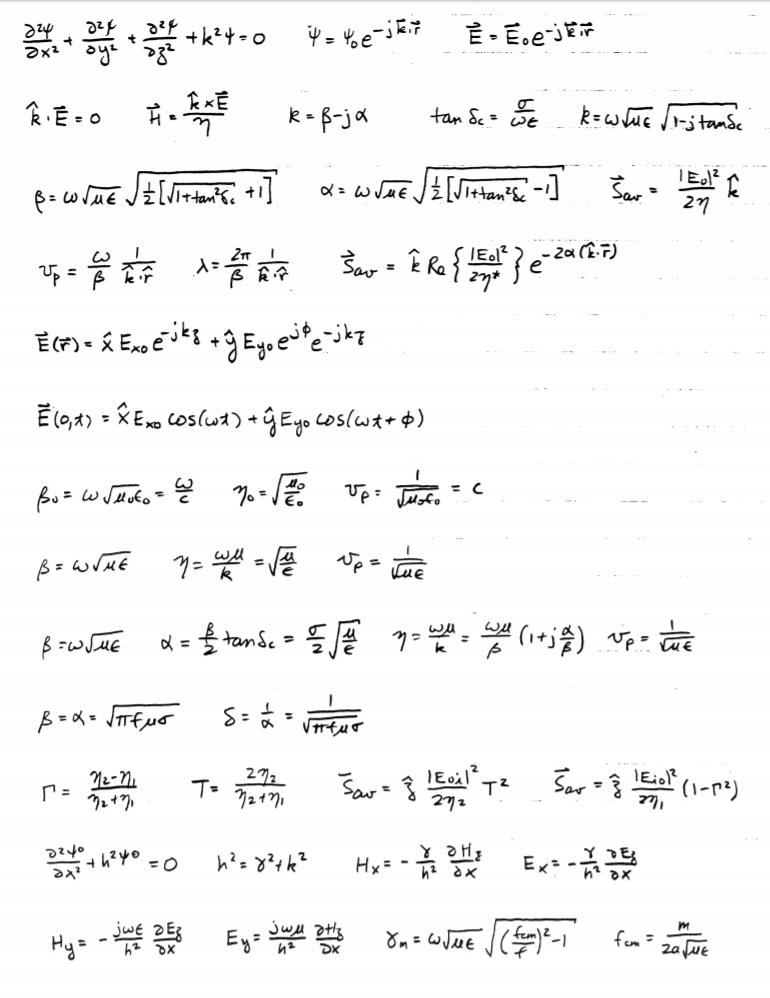 ∂²ψ/∂x² + ∂²ψ/∂y² + ∂²ψ/∂z² + k²ψ = 0    ψ = ψ₀e^(-jk⃗·r⃗)    E⃗ = E⃗₀e^(-jk⃗·r⃗)
k̂·E⃗ = 0    H⃗ = (k̂×E⃗)/η    k = β-jα    tan δc = σ/(ωϵ)    k = ω√(μϵ) √(1-j tanδc)
β = ω√(μϵ) √(½[√(1+tan²δc) +1])    α = ω√(μϵ) √(½[√(1+tan²δc) -1])    S⃗av = (|E₀|²/2η) k̂
vp = (ω/β) (1/(k̂·r̂))    λ = (2π/β) (1/(k̂·r̂))    S⃗av = k̂ Re{|E₀|²/2η*} e^(-2α(k̂·r⃗))
E⃗(r⃗) = x̂ Ex₀ e^(-jkz) + ŷ Ey₀ e^(jϕ) e^(-jkz)
E⃗(0,t) = x̂ Ex₀ cos(ωt) + ŷ Ey₀ cos(ωt + ϕ)
β₀ = ω√(μ₀ϵ₀) = ω/c    η₀ = √(μ₀/ϵ₀)    vp = 1/√(μ₀ϵ₀) = c
β = ω√(μϵ)    η = ωμ/k = √(μ/ϵ)    vp = 1/√(μϵ)
β = ω√(μϵ)    α = (β/2) tan δc = (σ/2)√(μ/ϵ)    η = ωμ/k = (ωμ/β)(1+j α/β)    vp = 1/√(μϵ)
β = α = √(πfμσ)    δ = 1/α = 1/√(πfμσ)
Γ = (η₂-η₁)/(η₂+η₁)    T = 2η₂/(η₂+η₁)    S⃗av = ẑ (|E₀i|²/2η₂) T²    S⃗av = ẑ (|Ei₀|²/2η₁) (1-Γ²)
∂²ψ⁰/∂x² + h²ψ⁰ = 0    h² = γ²+k²    Hx = -(γ/h²) ∂Hz/∂x    Ex = -(γ/h²) ∂Ez/∂x
Hy = -(jωϵ/h²) ∂Ez/∂x    Ey = (jωμ/h²) ∂Hz/∂x    γm = ω√(μϵ) √((fcm/f)²-1)    fcm = m/(2a√(μϵ))